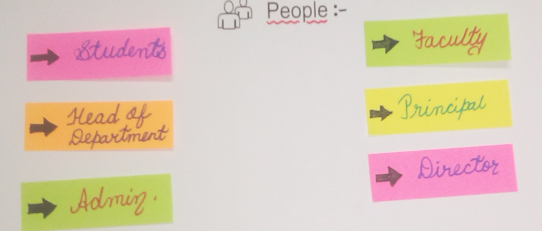 People :-
Students
Head of
Department
Admin.
Faculty
Principal
Director